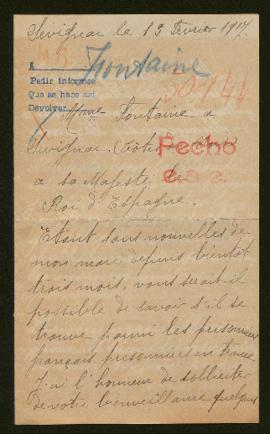 Sévignac le 13 Février 1917.
Fontaine
A
Pedir informes
Que se hace así
Devolver
Mme Fontaine a
Sévignac (Côtes
Fecho
e.s.e.
a sa Majesté le
Roi d'Espagne.
Etant sans nouvelles de
mon mari depuis bientôt
trois mois, vous serait-il
possible de savoir s'il se
trouve parmi les prisonniers
français prisonniers en
J'ai l'honneur de solliciter
de votre bienveillance quelques